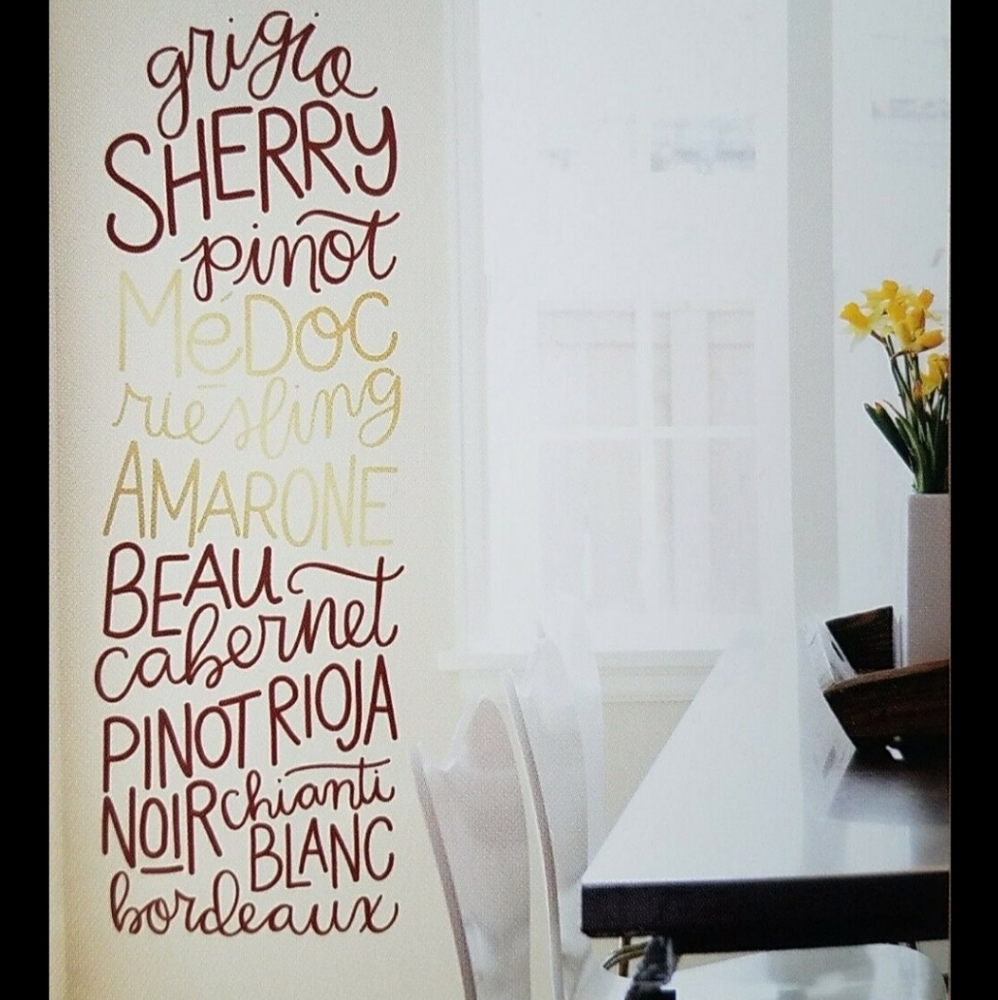 grigio
SHERRY
pinot
MéDOC
riesling
AMARONE
BEAU
cabernet
PINOT RIOJA
NOIR chianti
BLANC
bordeaux